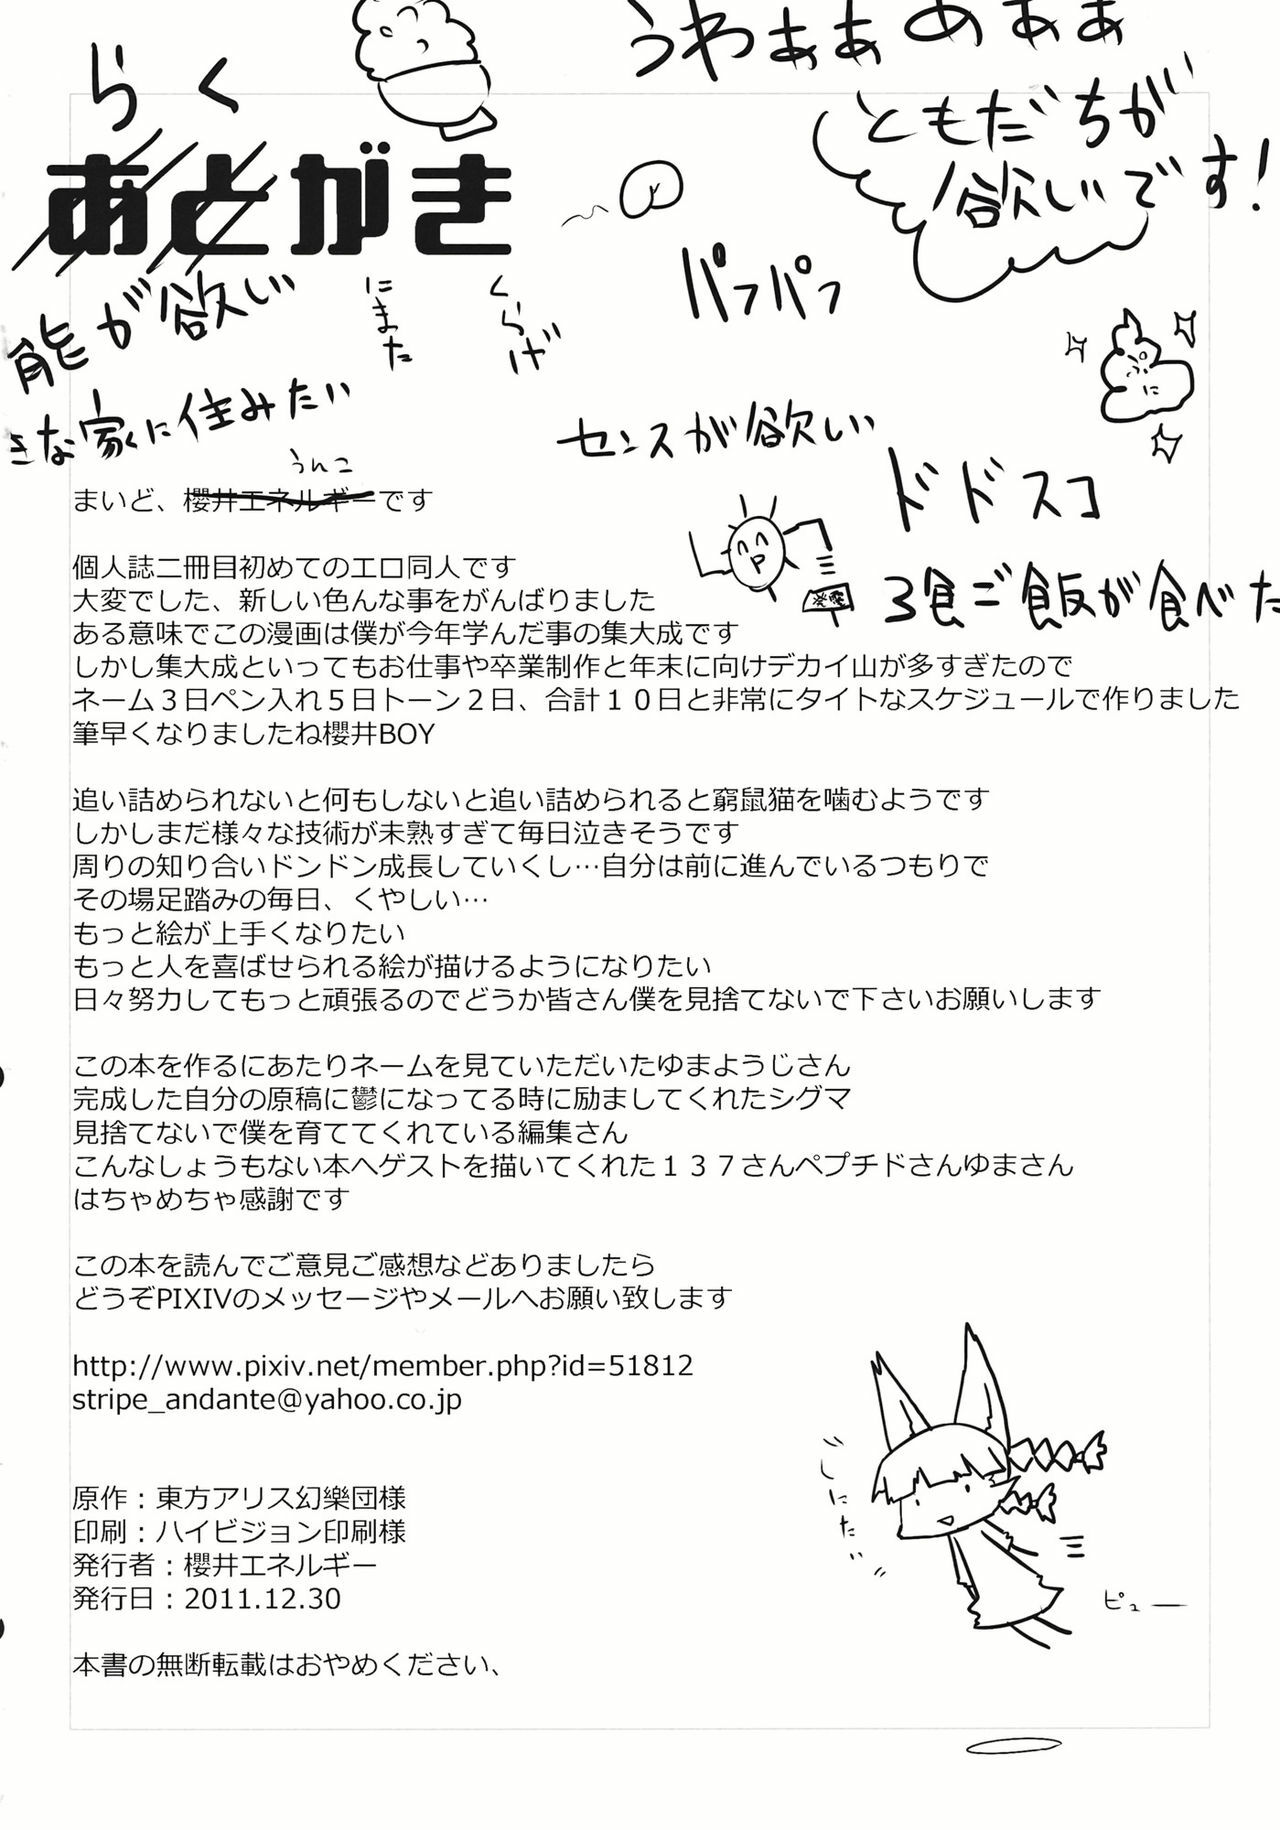 うわぁぁあぁぁ
らく
ともだちが
欲しいです!
あとがき
パフパフ
能が欲しい
にまた
くらげ
きな家に住みたい
センスが欲しい
に
ドドスコ
うんこ
まいど、櫻井エネルギーです
3食ご飯が食べた
個人誌二冊目初めてのエロ同人です
大変でした、新しい色んな事をがんばりました
ある意味でこの漫画は僕が今年学んだ事の集大成です
しかし集大成といってもお仕事や卒業制作と年末に向けデカイ山が多すぎたので
ネーム３日ペン入れ５日トーン２日、合計１０日と非常にタイトなスケジュールで作りました
筆早くなりましたね櫻井BOY
追い詰められないと何もしないと追い詰められると窮鼠猫を噛むようです
しかしまだ様々な技術が未熟すぎて毎日泣きそうです
周りの知り合いドンドン成長していくし…自分は前に進んでいるつもりで
その場足踏みの毎日、くやしい…
もっと絵が上手くなりたい
もっと人を喜ばせられる絵が描けるようになりたい
日々努力してもっと頑張るのでどうか皆さん僕を見捨てないで下さいお願いします
この本を作るにあたりネームを見ていただいたゆまようじさん
完成した自分の原稿に鬱になってる時に励ましてくれたシグマ
見捨てないで僕を育ててくれている編集さん
こんなしょうもない本へゲストを描いてくれた１３７さんペプチドさんゆまさん
はちゃめちゃ感謝です
この本を読んでご意見ご感想などありましたら
どうぞPIXIVのメッセージやメールへお願い致します
http://www.pixiv.net/member.php?id=51812
stripe_andante@yahoo.co.jp
しにたい
原作：東方アリス幻樂団様
印刷：ハイビジョン印刷様
発行者：櫻井エネルギー
発行日：2011.12.30
ピュー
本書の無断転載はおやめください、